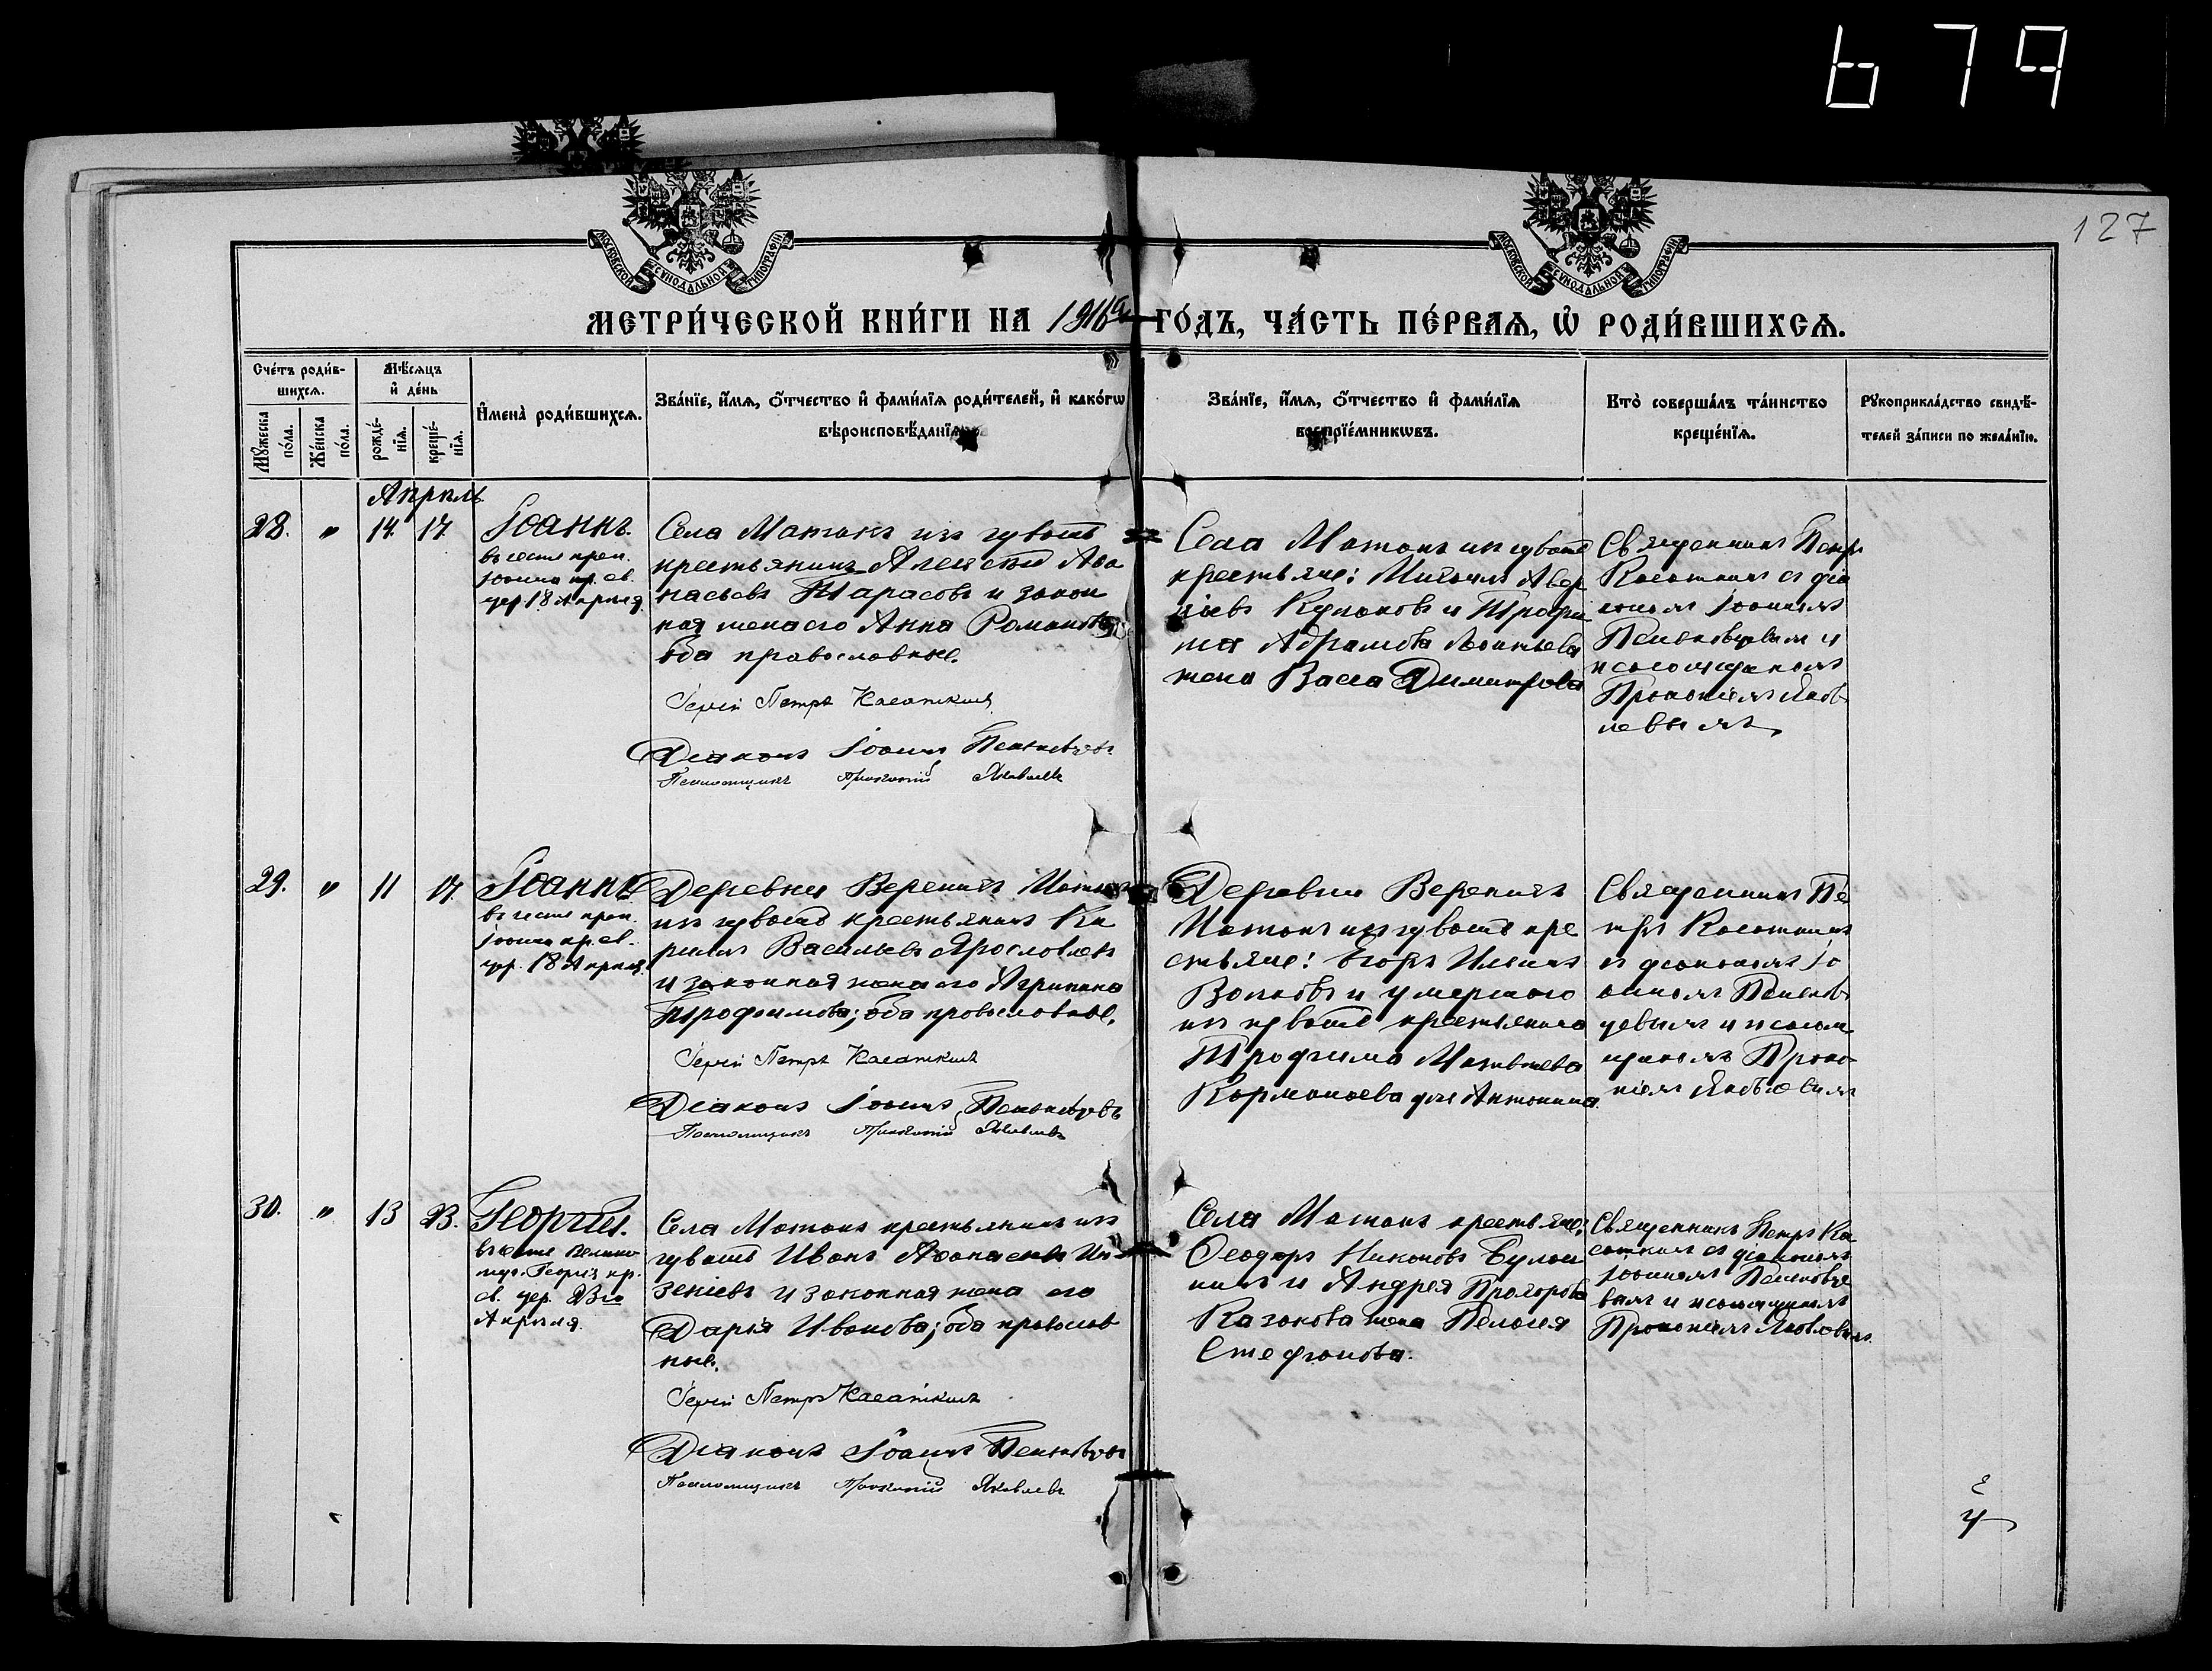 679
127
МОСКОВСКОЙ СѴНОДАЛЬНОЙ ТИПОГРАФІИ
МОСКОВСКОЙ СѴНОДАЛЬНОЙ ТИПОГРАФІИ
МЕТРИ́ЧЕСКОЙ КНИ́ГИ НА 1916 ГО́ДЪ, ЧА́СТЬ ПЕ́РВАѦ, Ѡ҆ РОДИ́ВШИХСѦ.
Сче́тъ роди́в-
шихсѧ.
Мꙋжеска по́ла.
Же́нска по́ла.
Мѣ́сѧцъ
и҆ де́нь
рожде́-
нїѧ.
креще́-
нїѧ.
И҆мена̀ роди́вшихсѧ.
Зва́нїе, и҆́мѧ, ѻ҆́тчество и҆ фами́лїѧ роди́телей, и҆ како́гѡ
вѣроисповѣ́данїѧ.
Зва́нїе, и҆́мѧ, ѻ҆́тчество и҆ фами́лїѧ
воспрїе́мникѡвъ.
Кто̀ соверша́лъ та́инство
креще́нїѧ.
Рꙋкоприкла́дство свидѣ́-
телей за́писи по жела́нїю.
Апрѣль
28. " 14. 17.
Іоаннъ.
въ честь преп.
Іоанна пр. св.
цер. 18 Апрѣля.
Села Матакъ изъ чувашъ
крестьянинъ Алексѣй Аѳа
насьевъ Тарасовъ и закон
ная жена его Анна Романова
оба православные.
Іерей Петръ Касаткинъ
Діаконъ Іоаннъ Пеньковцевъ
Псаломщикъ Прокопій Яковлевъ
Села Матакъ изъ чувашъ
крестьяне: Михаилъ Авер
кіевъ Кулаковъ и Трофи
ма Абрамова Леонтьева
жена Васса Димитріева
Священникъ Петръ
Касаткинъ съ діа
кономъ Іоанномъ
Пеньковцевымъ и
псаломщикомъ
Прокопіемъ Яков-
левымъ
29. " 11 17.
Іоаннъ
въ честь преп.
Іоанна пр. св.
цер. 18 Апрѣля.
Деревни Веренякъ Матакъ
изъ чувашъ крестьянинъ Ки
риллъ Васильевъ Ярославлевъ
и законная жена его Агрипина
Трофимова; оба православные.
Іерей Петръ Касаткинъ
Діаконъ Іоаннъ Пеньковцевъ
Псаломщикъ Прокопій Яковлевъ
Деревни Веренякъ
Матакъ изъ чувашъ кре
стьяне: Егоръ Ильинъ
Волковъ и умершаго
изъ чувашъ крестьянина
Трофима Матвѣева
Кормакаева дчь Антонина.
Священникъ Пе
тръ Касаткинъ
съ діакономъ Іо
анномъ Пеньков
цевымъ и псалом
щикомъ Проко-
піемъ Яковлевымъ
30. " 13 23.
Георгій.
въ честь Велико
муч. Георгія пр.
св. цер. 23го
Апрѣля.
Села Матакъ крестьянинъ изъ
чувашъ Иванъ Аѳанасьевъ
и законная жена его
Дарья Иванова; оба православ
ные.
Іерей Петръ Касаткинъ
Діаконъ Іоаннъ Пеньковцевъ
Псаломщикъ Прокопій Яковлевъ
Села Матакъ крестьяне:
Ѳеодоръ Никоновъ Булан
кинъ и Андрея Прохорова
Казакова жена Пелагея
Стефанова.
Священникъ Петръ Ка
саткинъ съ діакономъ
Іоанномъ Пеньковце
вымъ и псаломщикомъ
Прокопіемъ Яковлевымъ.